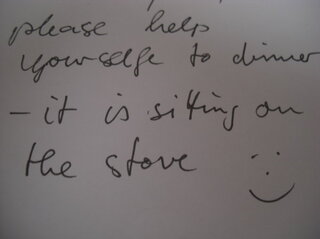 please help
yourself to dinner
- it is sitting on
the stove :)